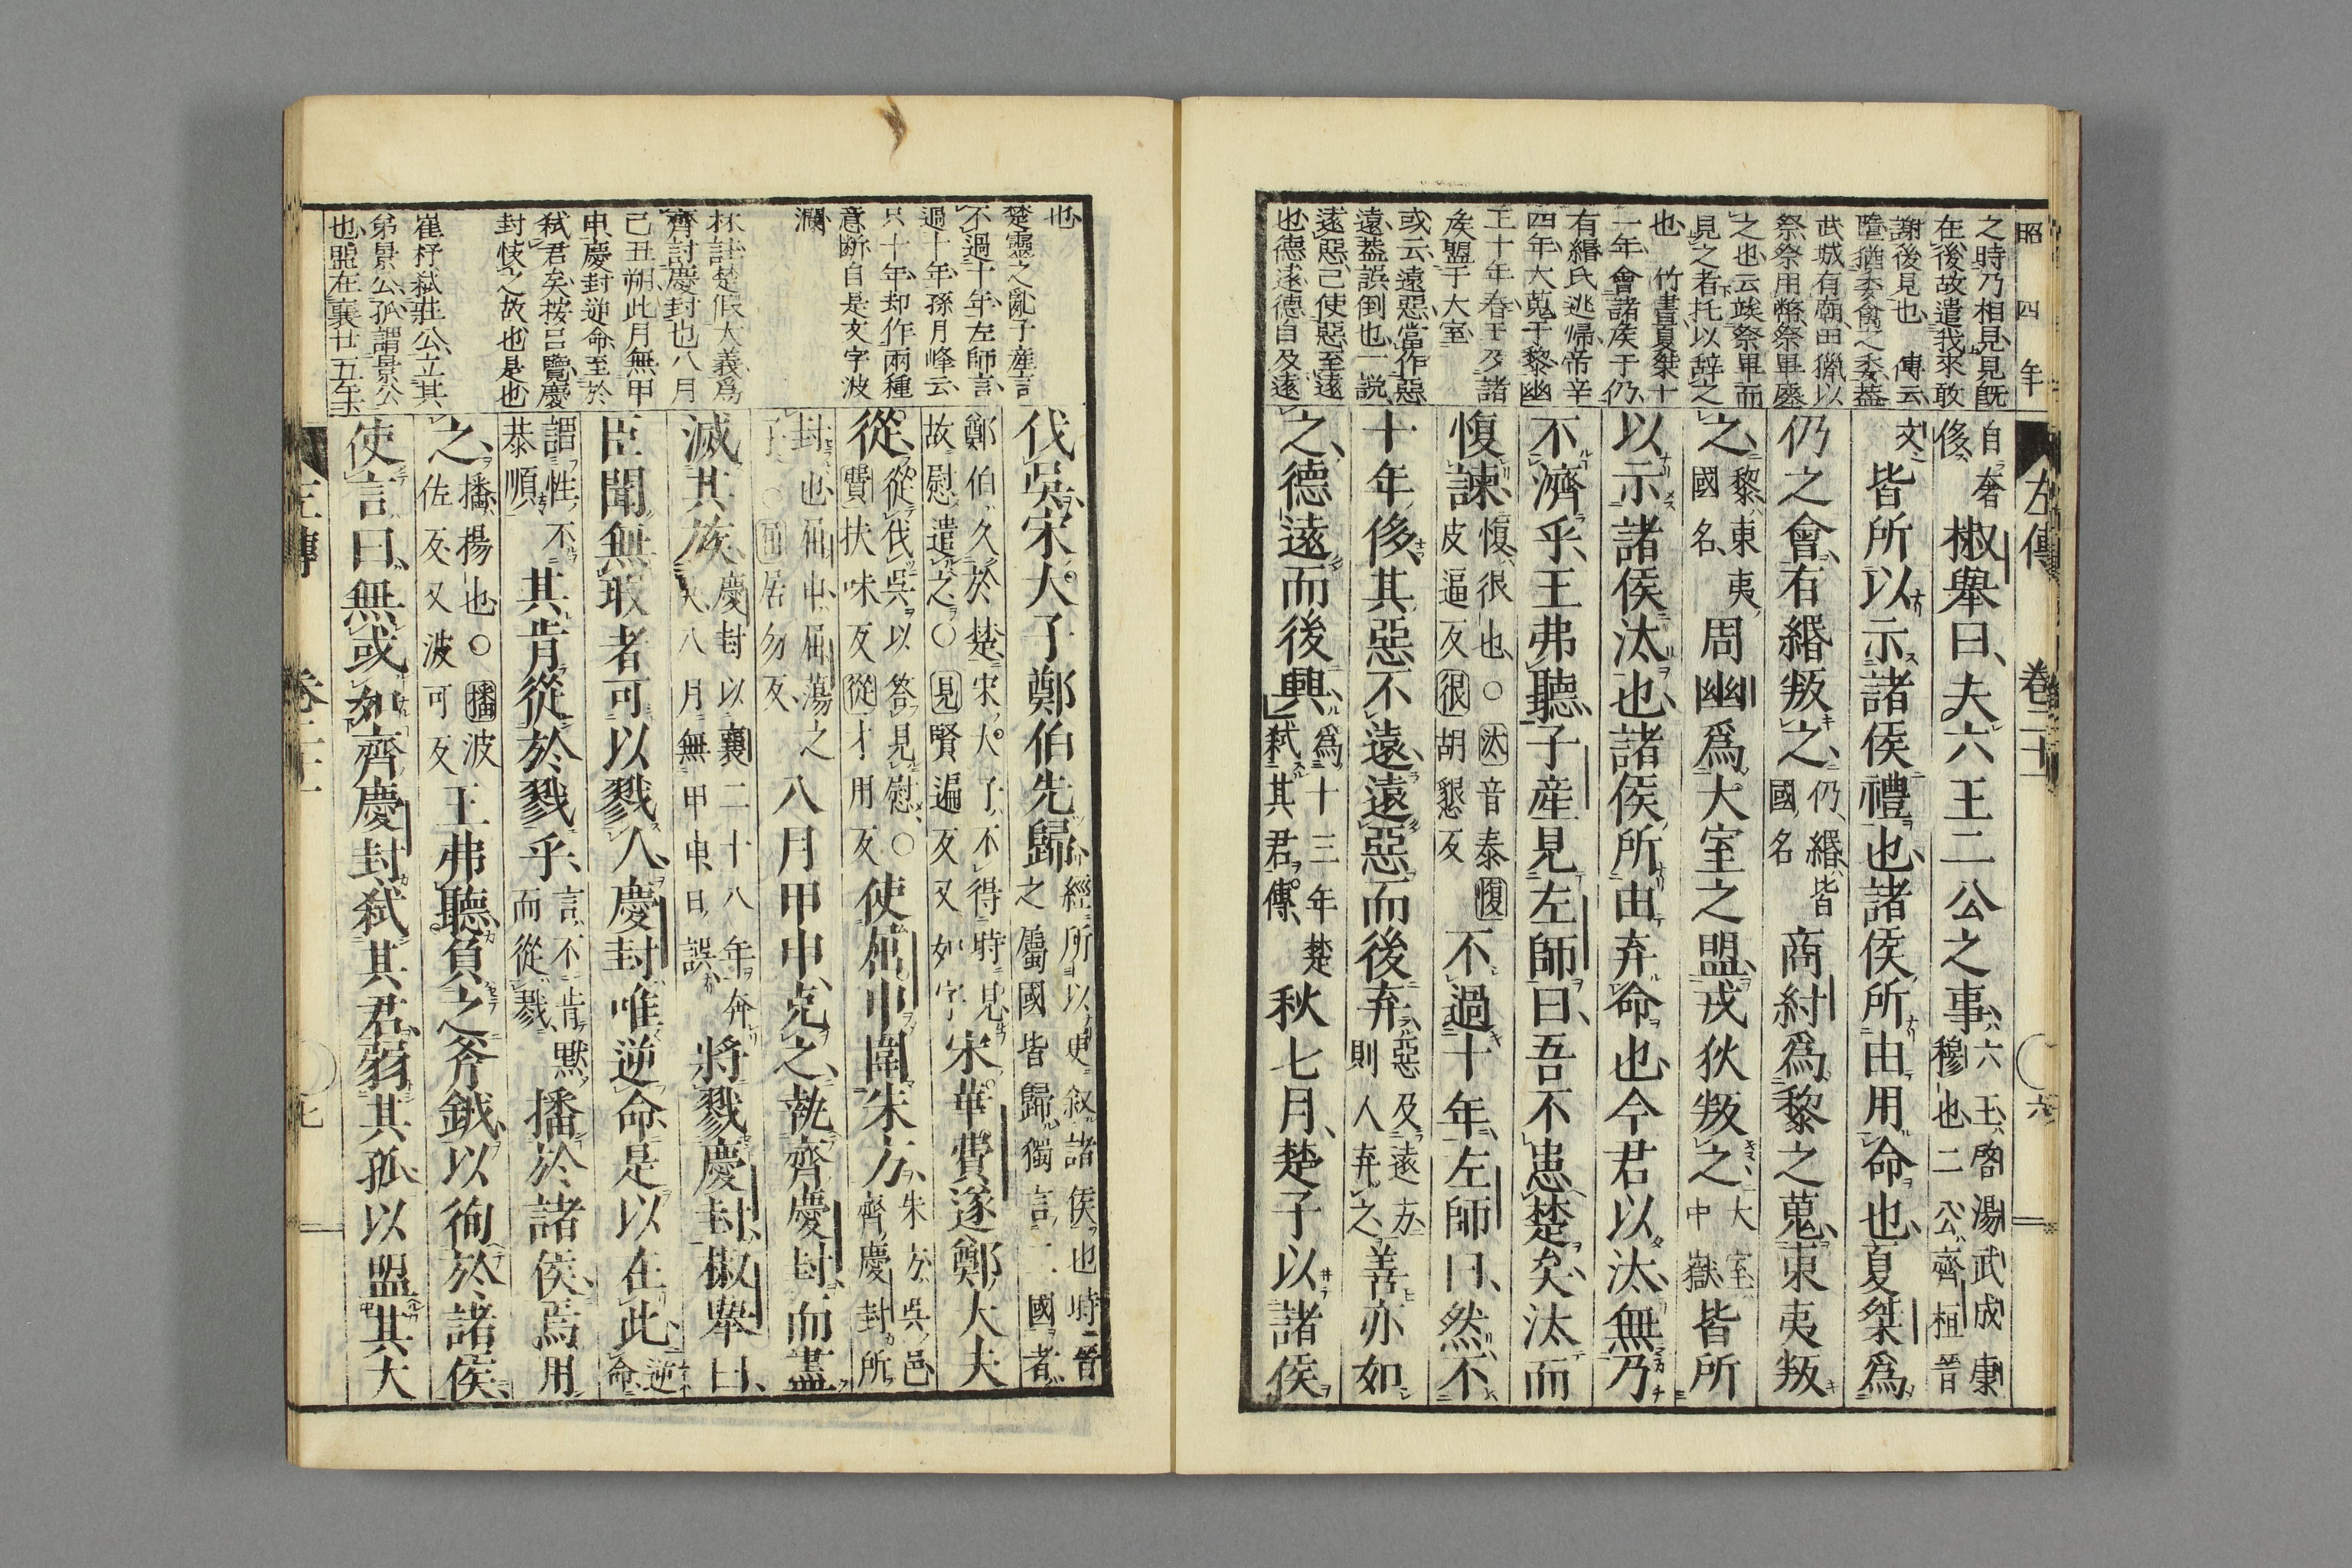 昭四年
左傳 卷二十一 六
之時乃相見見既
在後故遣我來敢
謝後見也 傳云
墮猶委禽之委蓋
武城有廟田獵以
祭祭用幣祭畢廢
之也云竢祭畢而
見之者托以辞之
也 竹書夏桀十
一年會諸矦于仍
有緡氏逃歸帝辛
四年大蒐于黎幽
王十年春王及諸
矦盟于大室
或云遠惡當作惡
遠蓋誤倒也一説
遠惡己使惡至遠
也德遠德自及遠
自奢侈 椒舉曰夫六王二公之事六王啓湯武成康穆也二公齊桓晉
文 皆所以示諸侯禮也諸侯所由用命也夏桀爲
仍之會有緡叛之仍緡皆國名 商紂爲黎之蒐東夷叛
之黎東夷國名 周幽爲大室之盟戎狄叛之大室中嶽 皆所
以示諸侯汰也諸侯所由弃命也今君以汰無乃
不濟乎王弗聽子産見左師曰吾不患楚矣汰而
愎諫愎很也○汰音泰愎皮逼反很胡懇反 不過十年左師曰然不
十年侈其惡不遠遠惡而後弃惡及遠方則人弃之 善亦如
之德遠而後興爲十三年楚弑其君傳 秋七月楚子以諸侯
也
楚靈之亂子産言
不過十年左師言
過十年孫月峰云
只十年却作兩種
意断自是文字波
瀾
林註楚假大義爲
齊討慶封也八月
己丑朔此月無甲
申慶封逆命至於
弑君矣按呂覽慶
封快之故也是也
崔杼弑莊公立其
弟景公孤謂景公
也盟在襄廿五年
伐吳宋大子鄭伯先歸經所以更叙諸侯也時晉之屬國皆歸獨言二國者
鄭伯久於楚宋大子不得時見故慰遣之○見賢遍反又如字 宋華費遂鄭大夫
從從伐吳以答見慰○費扶味反從才用反 使屈申圍朱方朱方吳邑齊慶封所
封也屈申屈蕩之子○屈居勿反 八月甲申克之執齊慶封而盡
滅其族慶封以襄二十八年奔八月無甲申日誤 將戮慶封椒舉曰
臣聞無瑕者可以戮人慶封唯逆命是以在此逆命
謂性不恭順 其肯從於戮乎言不肯默而從戮 播於諸侯焉用
之播揚也○播波佐反又波可反 王弗聽負之斧鉞以徇於諸侯
使言曰無或如齊慶封弑其君弱其孤以盟其大
左傳 卷二十一 七